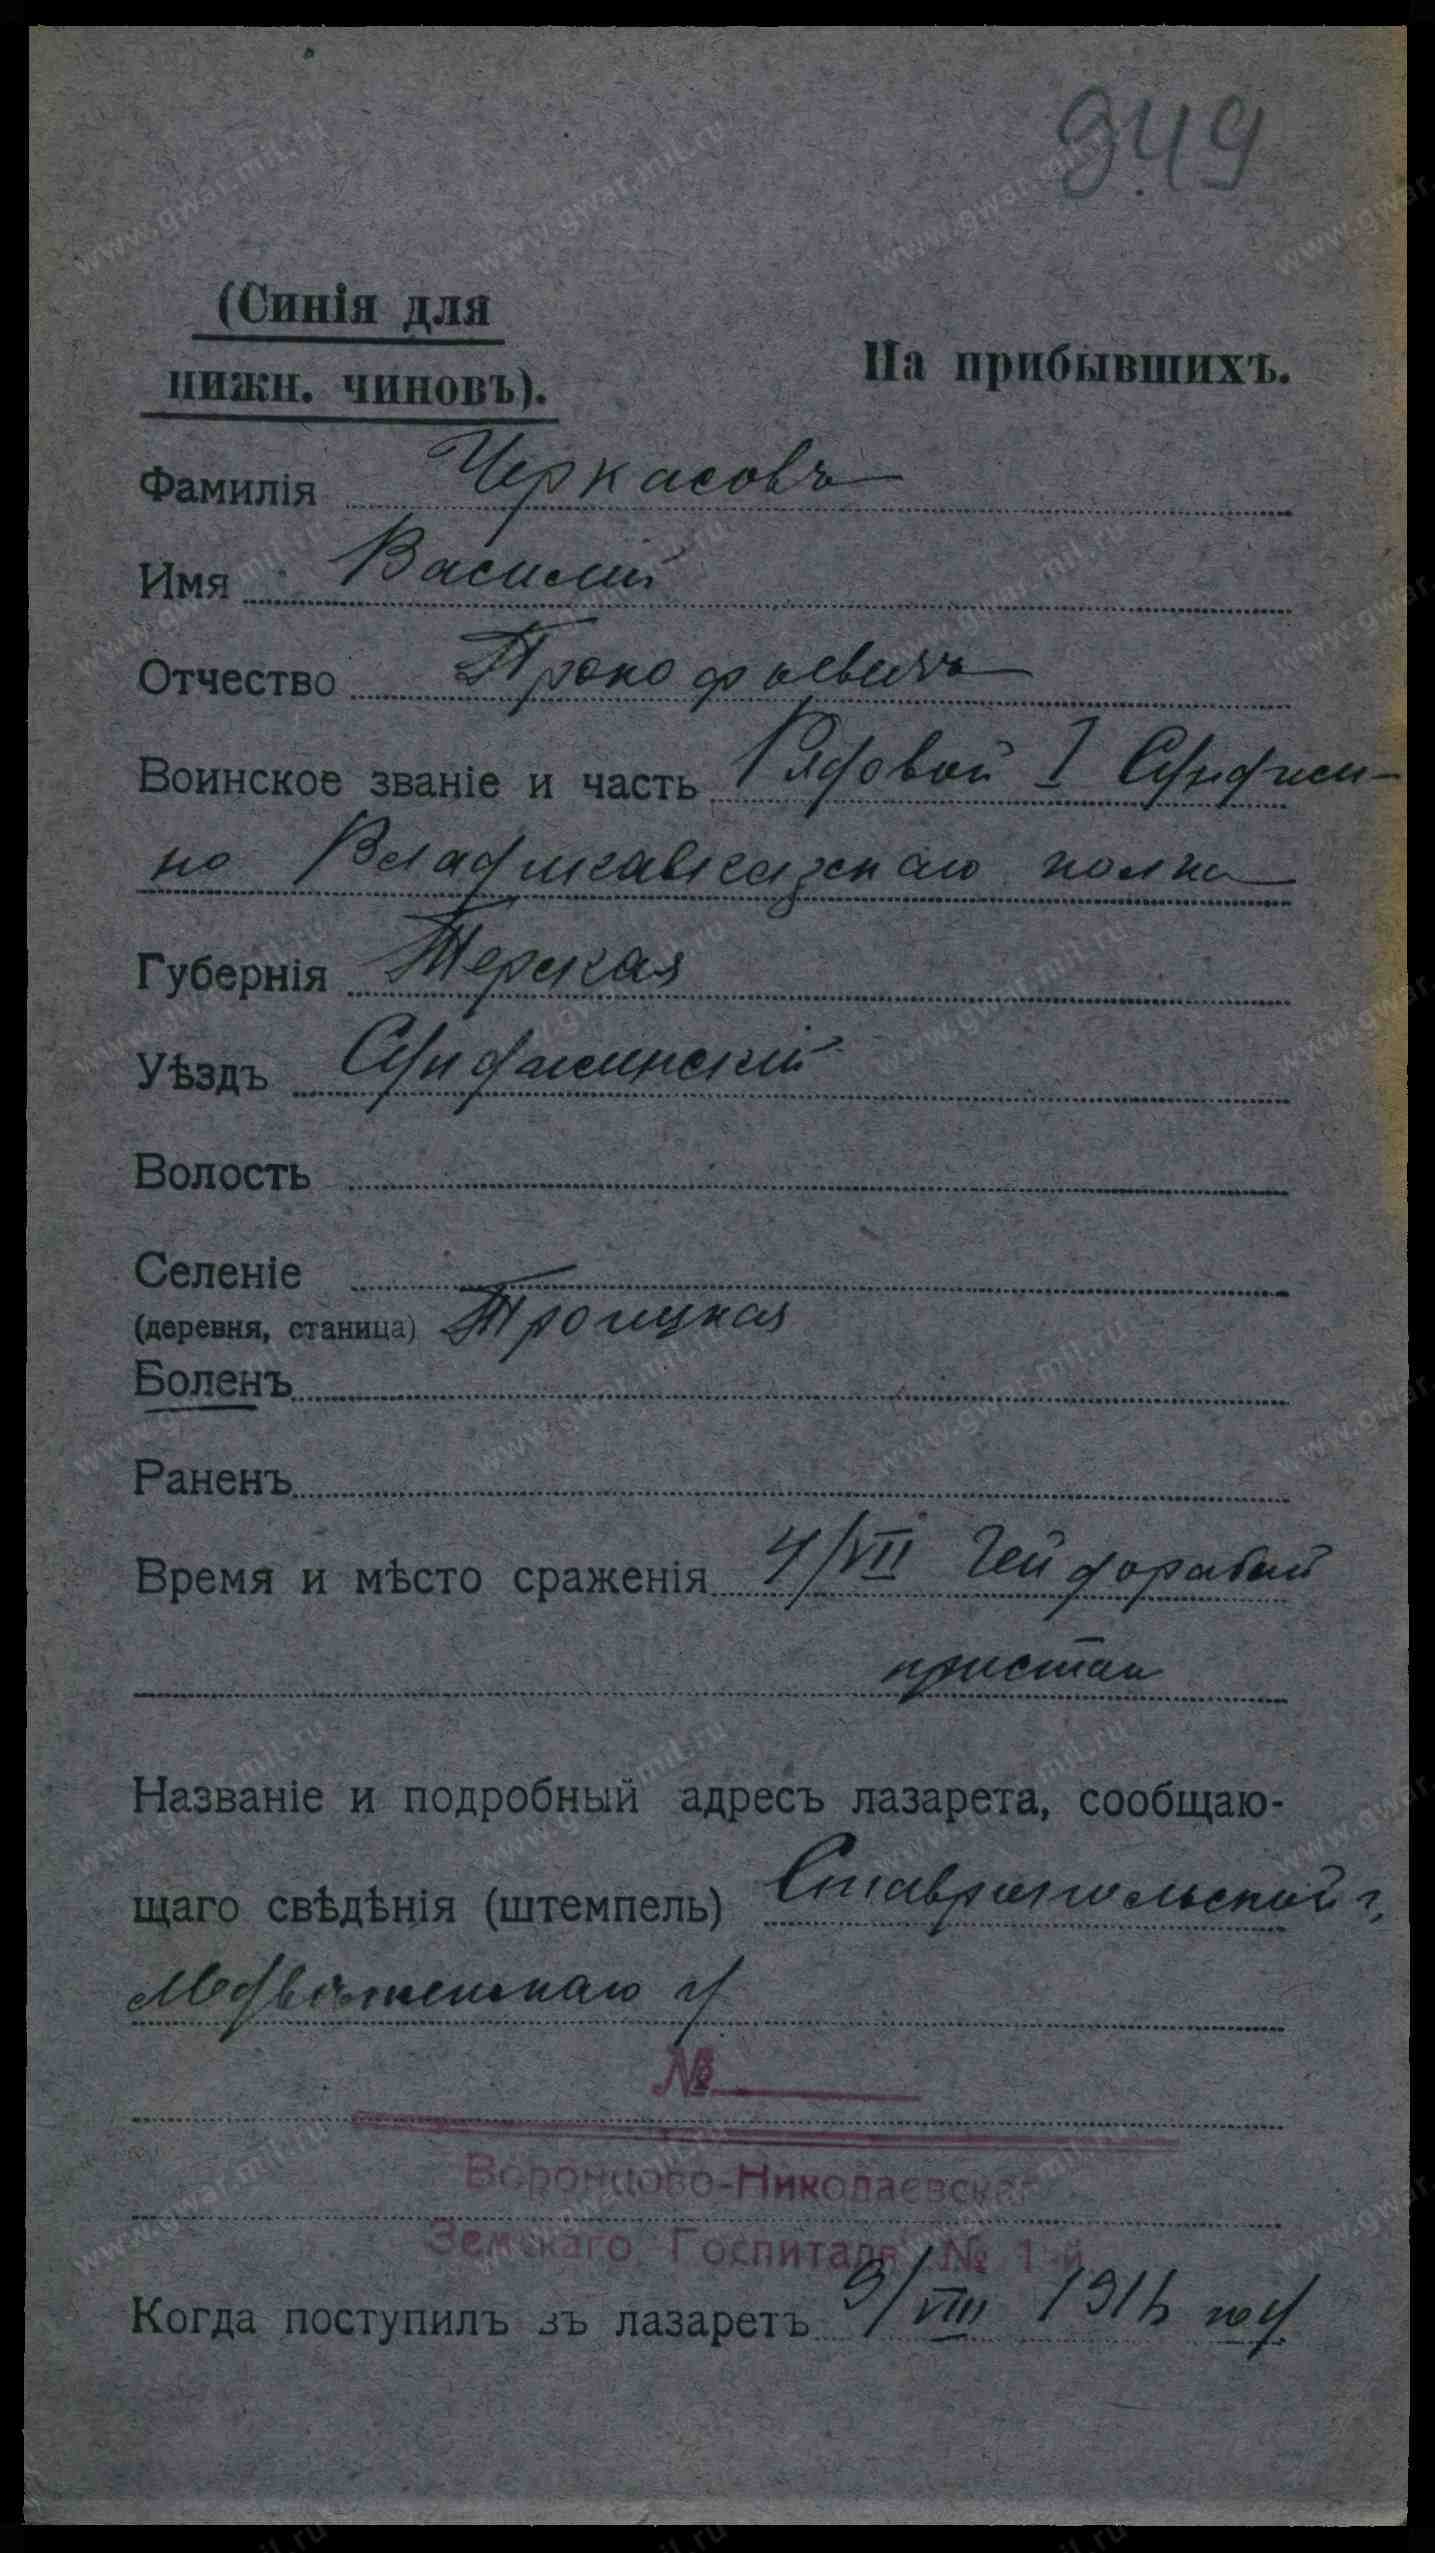 949
(Синія для
нижн. чиновъ).
На прибывшихъ.
Фамилія Черкасовъ
Имя Василій
Отчество Прокофьевичъ
Воинское званіе и часть Рядовой I Сунжен-
но Владикавказскаго полка
Губернія Терская
Уѣздъ Сунженскій
Волость
Селеніе
(деревня, станица) Троицкая
Боленъ
Раненъ
Время и мѣсто сраженія 4/VII
пристан
Названіе и подробный адресъ лазарета, сообщаю-
щаго свѣдѣнія (штемпель) Ставропольской г.
Медвѣженскаго у
№
Воронцово-Николаевскаг
Земскаго Госпиталя № 1-й
Когда поступилъ въ лазаретъ 9/VIII 1916 год